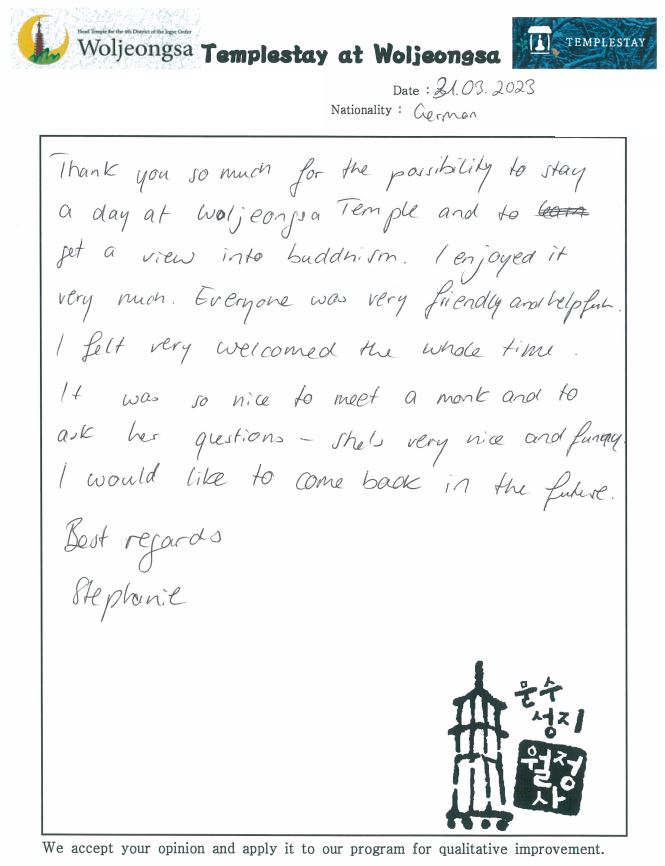 Head Temple for the 4th District of the Jogye Order
Woljeongsa
Templestay at Woljeongsa
TEMPLESTAY
Date : 31.03.2023
Nationality : German
Thank you so much for the possibility to stay
a day at Woljeongsa Temple and to learn
get a view into buddhism. I enjoyed it
very much. Everyone was very friendly and helpful.
I felt very welcomed the whole time.
It was so nice to meet a monk and to
ask her questions – she's very nice and funny.
I would like to come back in the future.
Best regards
Stephanie
문수
성지
월정
사
We accept your opinion and apply it to our program for qualitative improvement.